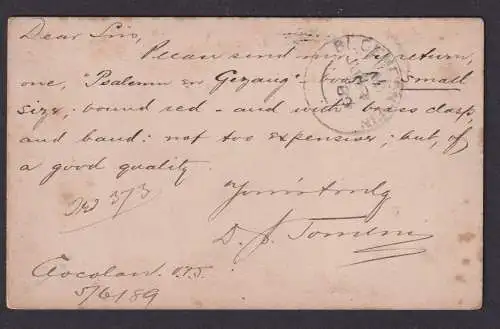 Dear Sirs,
Please send me by return,
one, "Psalemn en Gezang" book small
size; bound red - and with brass clasp
and band: not too expensive; but, of
a good quality.
Yours truly
D. J. Tomlin
Rd 3/3
O.F.S.
5/6/89